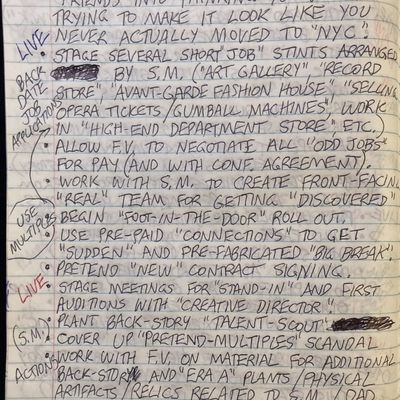 FRIENDS INTO THINKING YOU
TRYING TO MAKE IT LOOK LIKE YOU
NEVER ACTUALLY MOVED TO "NYC".
LIVE
• STAGE SEVERAL SHORT "JOB" STINTS ARRANGED
BY S.M. ("ART GALLERY", "RECORD
STORE", "AVANT-GARDE FASHION HOUSE", "SELLING
OPERA TICKETS/GUMBALL MACHINES", WORK
IN "HIGH-END DEPARTMENT STORE", ETC.)
BACK
DATE
JOB
APPLICATIONS
• ALLOW F.V. TO NEGOTIATE ALL "ODD JOBS"
FOR PAY (AND WITH CONF. AGREEMENT).
• WORK WITH S.M. TO CREATE FRONT-FACING
"REAL" TEAM FOR GETTING "DISCOVERED"
USE
MULTIPLES
• BEGIN "FOOT-IN-THE-DOOR" ROLL OUT.
• USE PRE-PAID "CONNECTIONS" TO GET
"SUDDEN" AND PRE-FABRICATED "BIG BREAK".
• PRETEND "NEW" CONTRACT SIGNING.
LIVE
• STAGE MEETINGS FOR "STAND-IN" AND FIRST
AUDITIONS WITH "CREATIVE DIRECTOR".
• PLANT BACK-STORY "TALENT-SCOUT".
(S.M.)
ACTIONS
• COVER UP "PRETEND-MULTIPLES" SCANDAL
• WORK WITH F.V. ON MATERIAL FOR ADDITIONAL
BACK-STORY AND "ERA A" PLANTS/PHYSICAL
ARTIFACTS/RELICS RELATED TO S.M./DAD